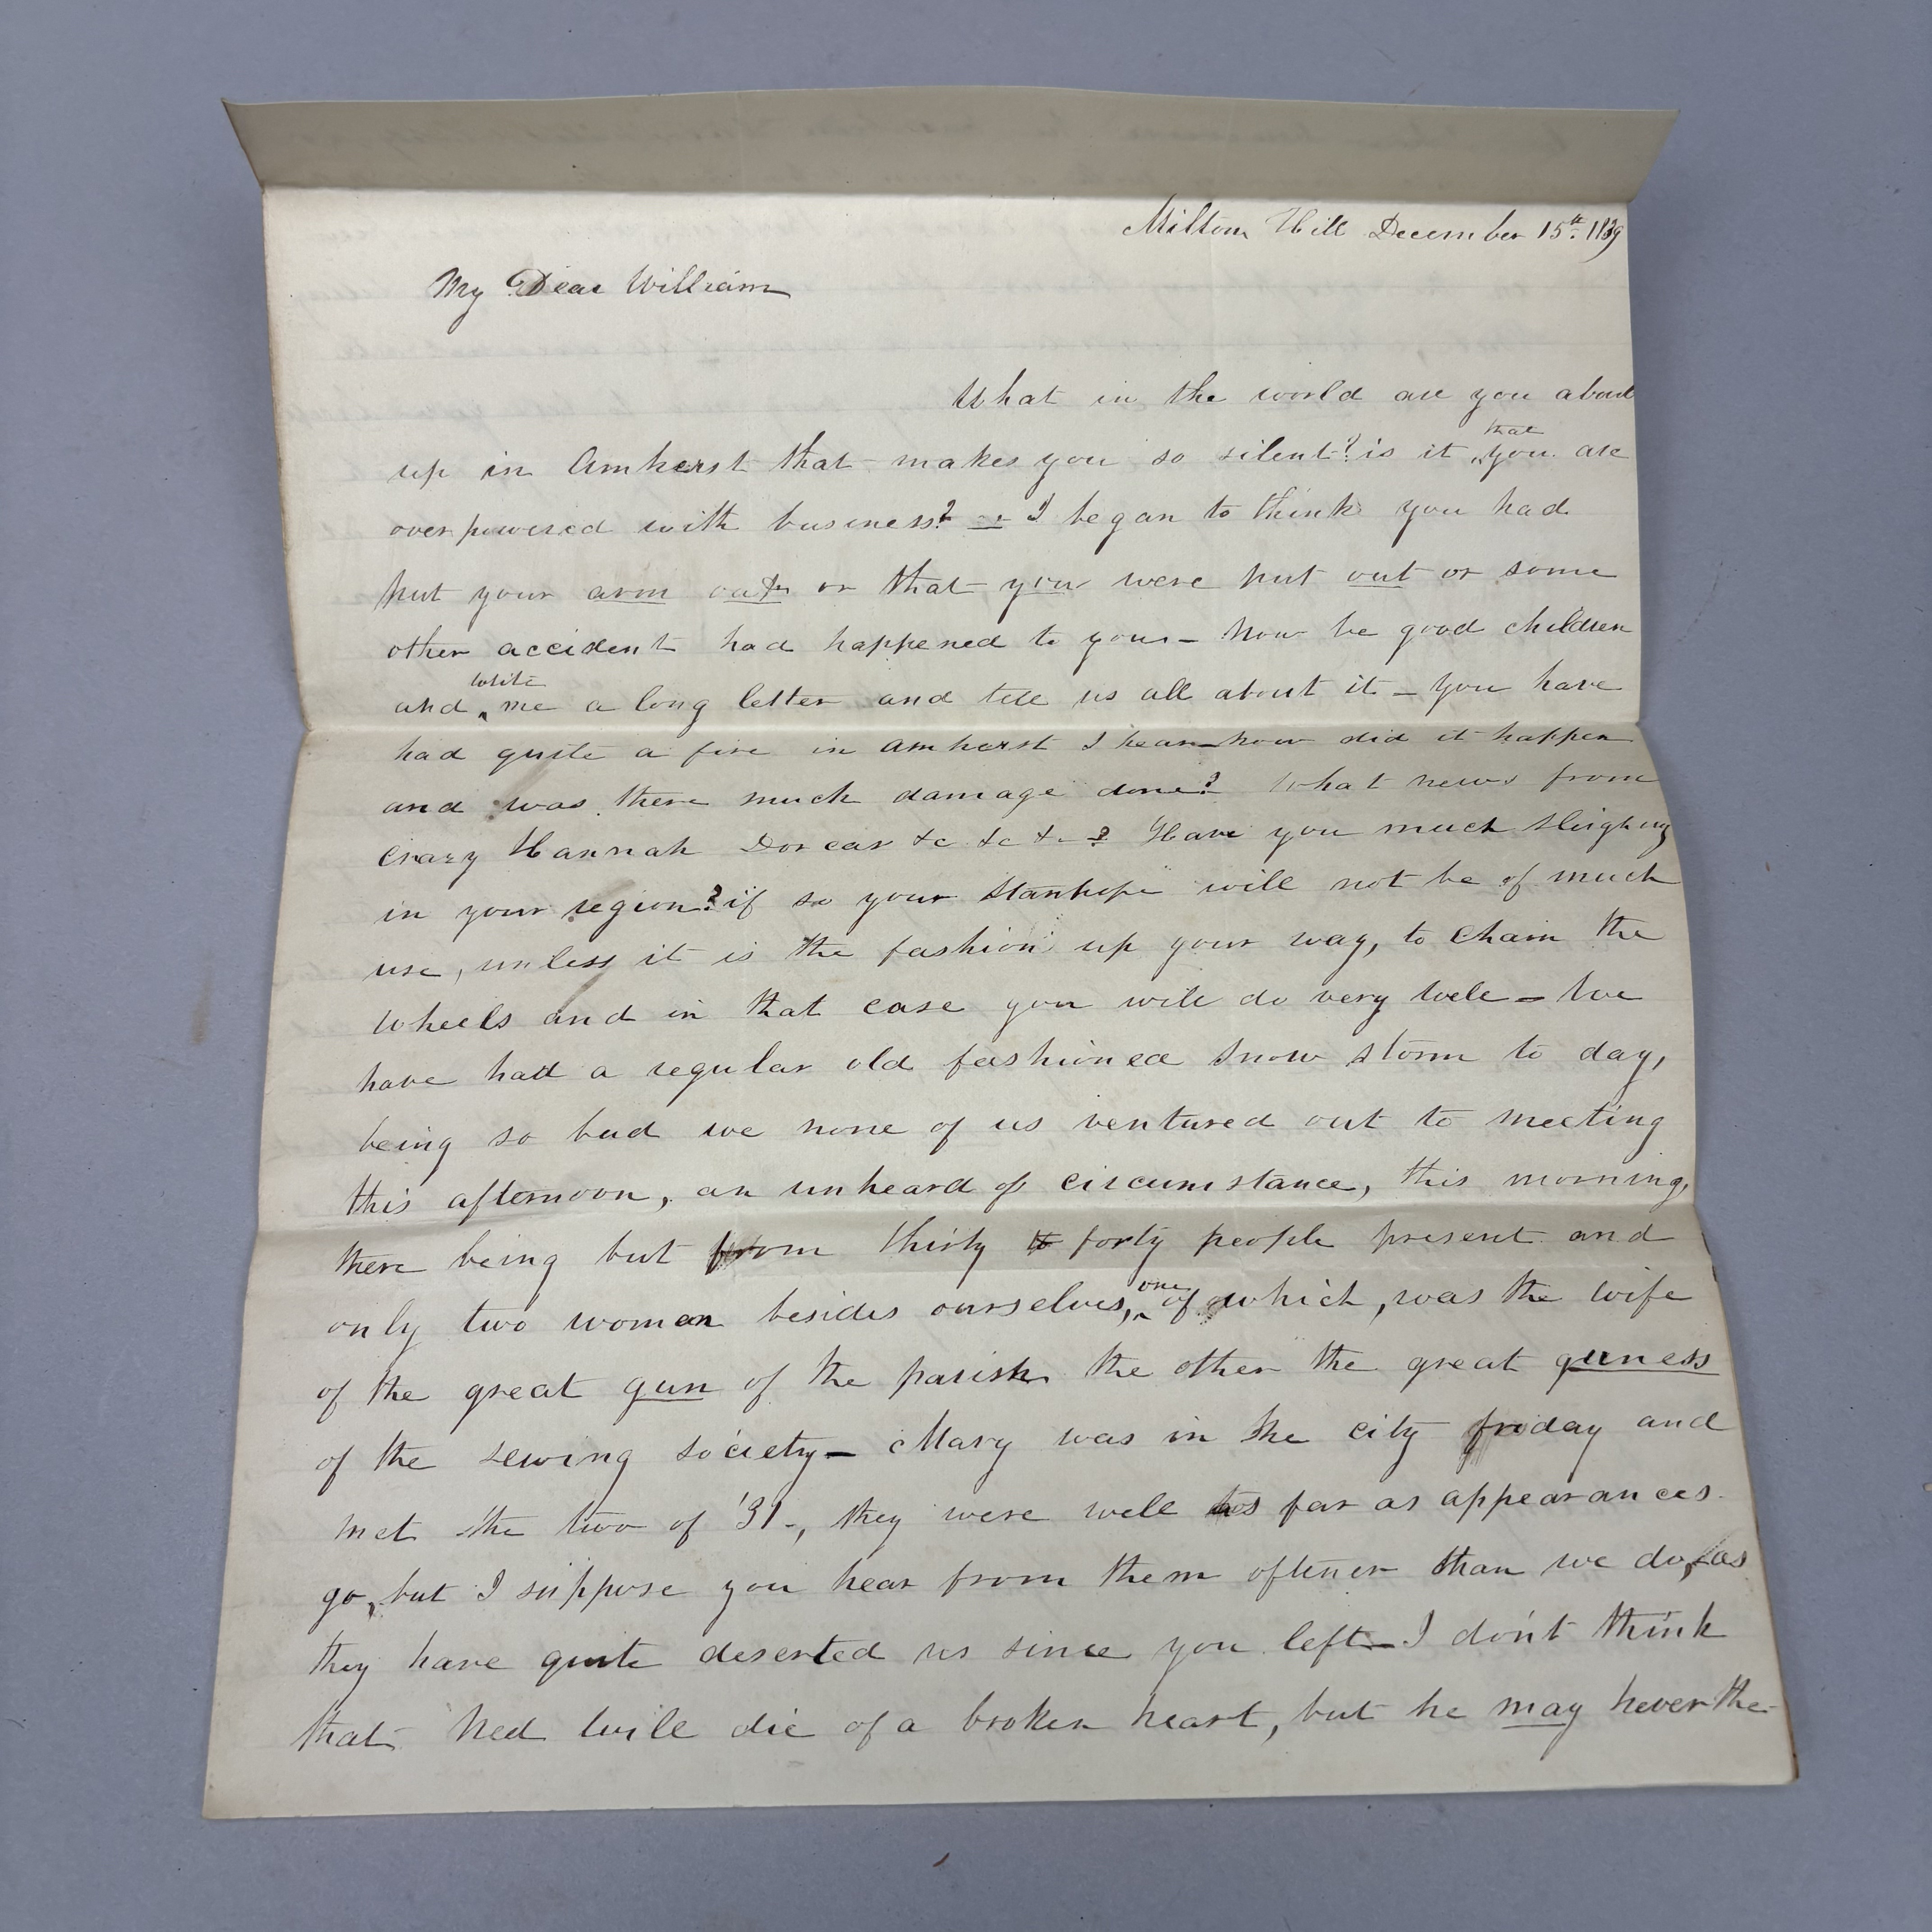 Milton Hill December 15th. 1839
My Dear William
What in the world are you about
up in Amherst that makes you so silent? is it that you are
overpowered with business? — I began to think you had
put your arm out or that you were put out or some
other accident had happened to you — now be good children
and write me a long letter and tell us all about it — You have
had quite a fire in Amherst I hear — how did it happen
and was there much damage done? What news from
Crazy Hannah Dorcas &c &c &c? Have you much sleighing
in your region? if so your Stanhope will not be of much
use, unless it is the fashion up your way, to chain the
wheels and in that case you will do very well — We
have had a regular old fashioned snow storm to day,
being so bad we none of us ventured out to meeting
this afternoon, an unheard of circumstance, this morning,
there being but from thirty to forty people present and
only two women besides ourselves, one of which, was the wife
of the great gun of the parish the other the great guness
of the sewing society — Mary was in the city friday and
met the two of '31 —, they were well as far as appearances
go, but I suppose you hear from them oftener than we do, as
they have quite deserted us since you left — I don't think
that Ned will die of a broken heart, but he may never the-